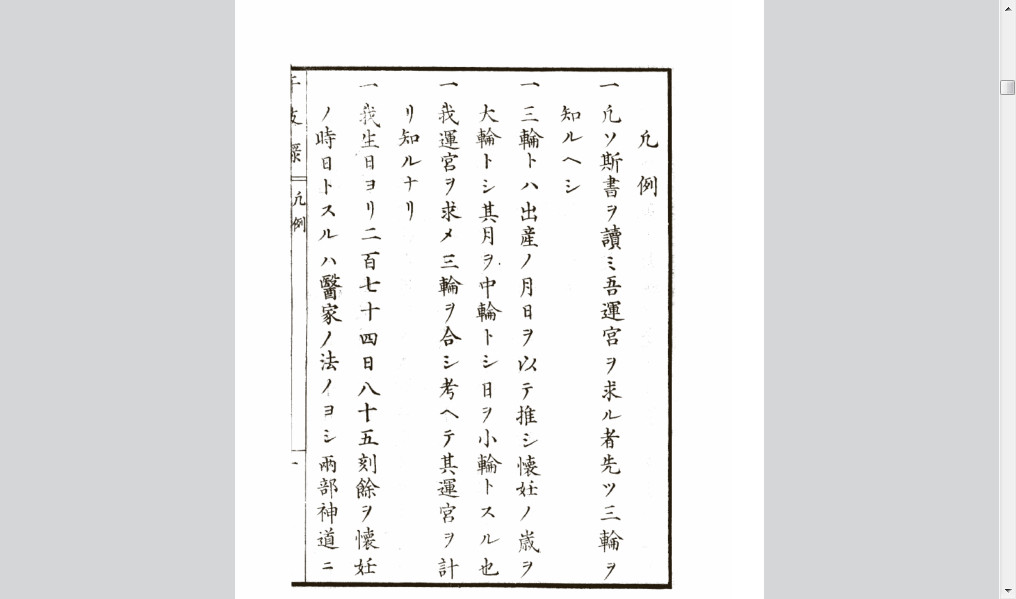 凡例
一凡ソ斯書ヲ讀ミ吾運宮ヲ求ル者先ツ三輪ヲ
知ルヘシ
一三輪トハ出産ノ月日ヲ以テ推シ懐妊ノ歳ヲ
大輪トシ其月ヲ中輪トシ日ヲ小輪トスル也
一我運宮ヲ求メ三輪ヲ合シ考ヘテ其運宮ヲ計
リ知ルナリ
一我生日ヨリ二百七十四日八十五刻餘ヲ懷妊
ノ時日トスルハ醫家ノ法ノヨシ兩部神道ニ
凡例
一